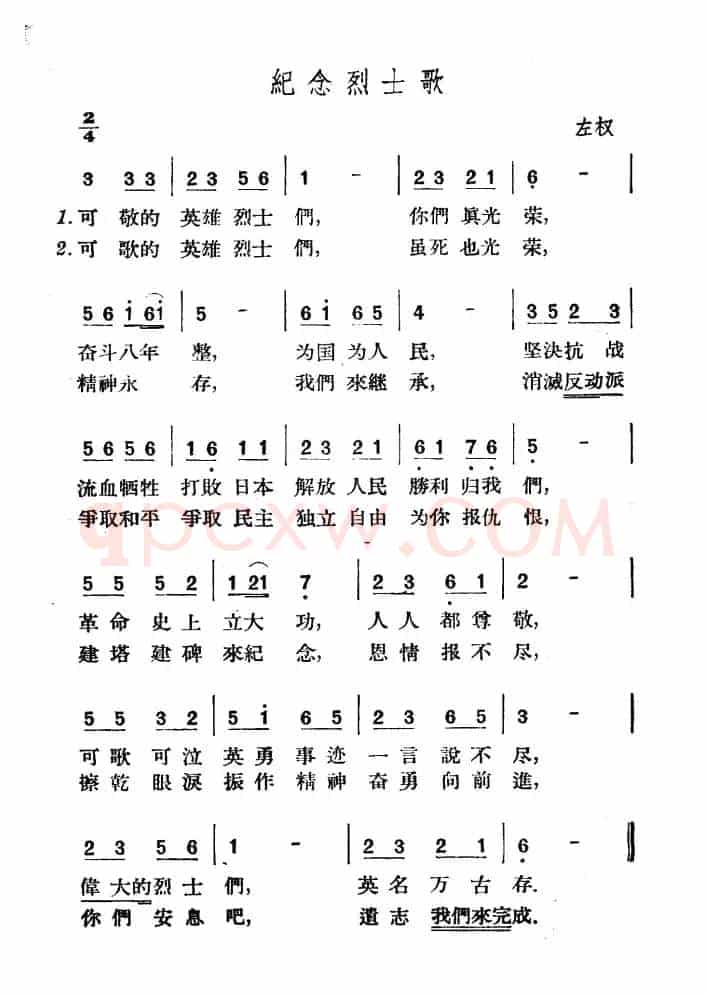 紀念烈士歌
2/4
左权
3 33 | 23 56 | 1 - | 23 21 | 6 - |
1.可 敬的 英雄 烈士 們, 你們 眞光 荣,
2.可 歌的 英雄 烈士 們, 虽死 也光 荣,
56 i 6i | 5 - | 6i 65 | 4 - | 352 3 |
奋斗八年 整, 为国 为人 民, 坚决抗 战
精神永 存, 我們 來継 承, 消滅反动派
5656 | 16 11 | 23 21 | 61 76 | 5 - |
流血牺牲 打敗 日本 解放 人民 勝利 归我 們,
爭取和平 爭取 民主 独立 自由 为你 报仇 恨,
qpcxw.COM
55 52 | 1 21 7 | 23 61 | 2 - |
革命 史上 立大 功, 人人 都尊 敬,
建塔 建碑 來紀 念, 恩情 报不 尽,
55 32 | 5i 65 | 23 65 | 3 - |
可歌 可泣 英勇 事迹 一言 說不 尽,
擦乾 眼淚 振作 精神 奋勇 向前 進,
23 56 | 1 - | 23 21 | 6 - ‖
偉大的烈士 們, 英名 万古 存.
你們 安息 吧, 遺志 我們來完成.